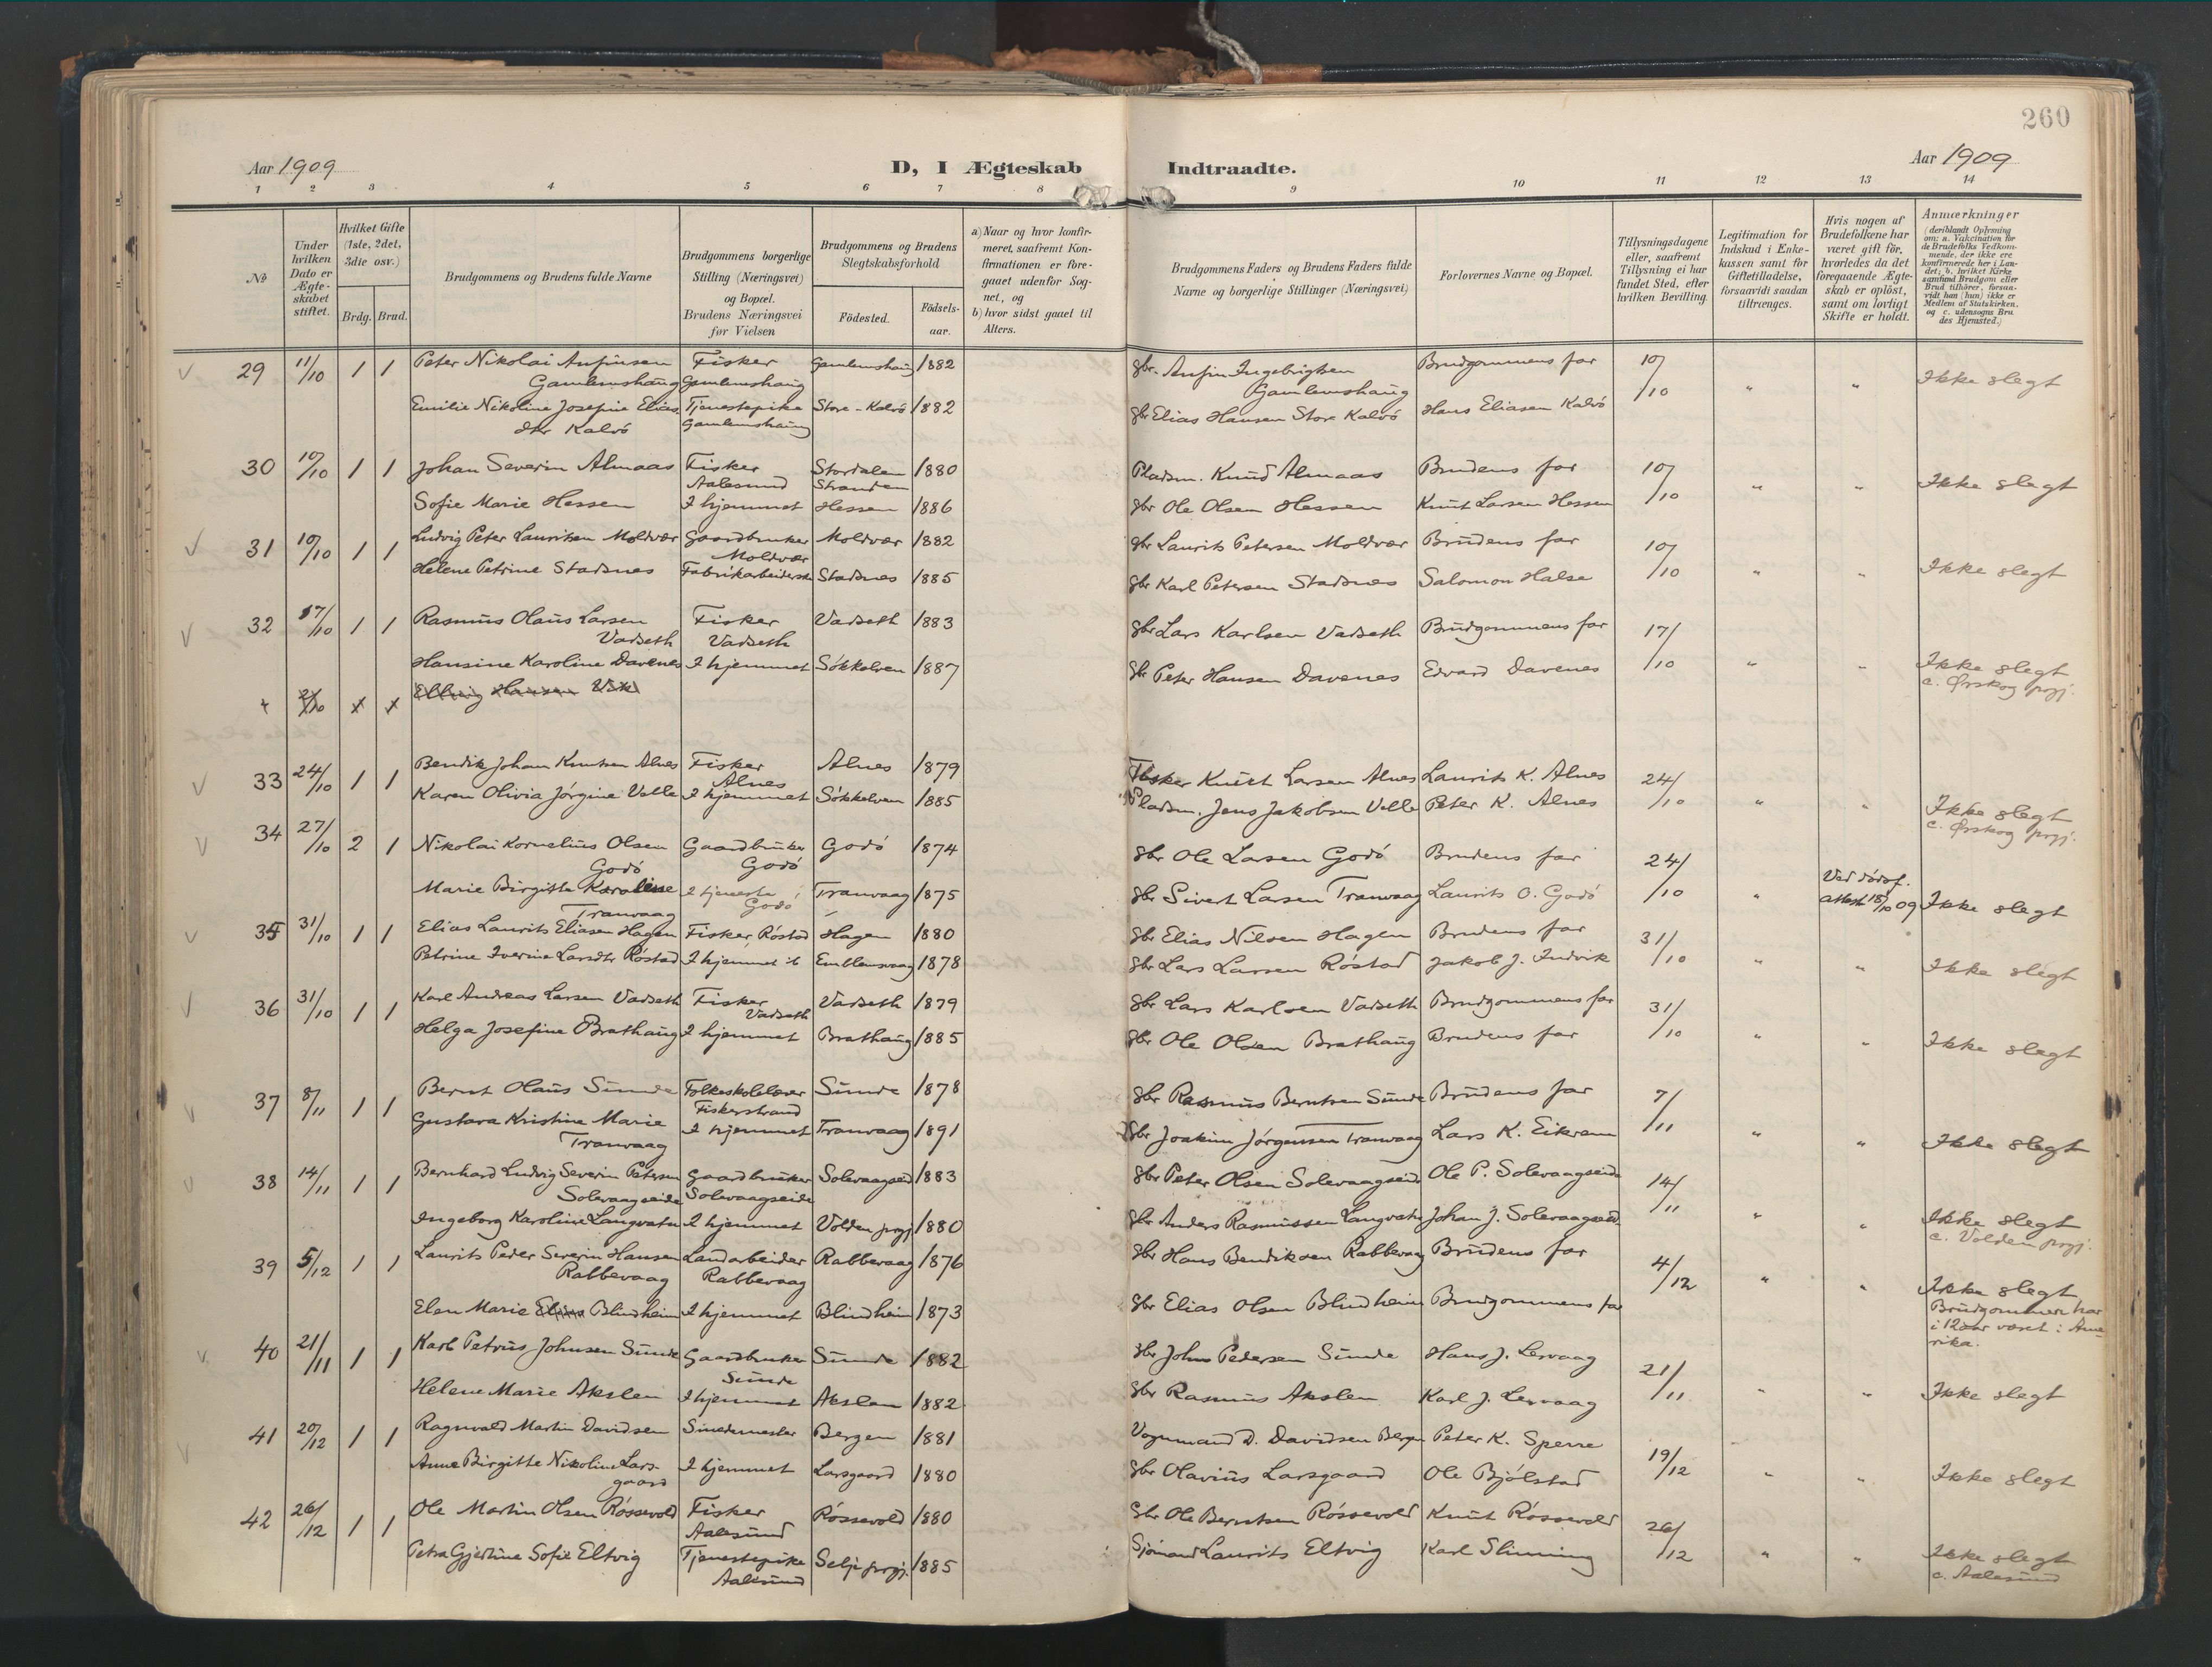 260
Aar 1909
D, I Ægteskab Indtraadte.
Aar 1909
1 2 3 4 5 6 7 8 9 10 11 12 13 14
No
Under hvilken Dato er Ægteskabet stiftet.
Hvilket Gifte (1ste, 2det, 3die osv.)
Brdg. Brud.
Brudgommens og Brudens fulde Navne
Brudgommens borgerlige Stilling (Næringsvei) og Bopæl. Brudens Næringsvei før Vielsen
Brudgommens og Brudens Slegtskabsforhold
Födested. Födselsaar.
a) Naar og hvor konfirmeret, saafremt Konfirmationen er foregaaet udenfor Sognet, og
b) hvor sidst gaaet til Alters.
Brudgommens Faders og Brudens Faders fulde Navne og borgerlige Stillinger (Næringsvei)
Forlovernes Navne og Bopæl.
Tillysningsdagene eller, saafremt Tillysning ei har fundet Sted, efter hvilken Bevilling.
Legitimation for Indskud i Enkekassen samt for Giftetilladelse, forsaavidt saadan tiltrænges.
Hvis nogen af Brudefolkene har været gift för, hvorledes da det foregaaende Ægteskab er oplöst, samt om lovligt Skifte er holdt.
Anmærkninger (deriblandt Oplysning om: a. Vakcination for de Brudefolks Vedkommende, der ikke ere konfirmerede her i Landet; b. hvilket Kirkesamfund Brudgom eller Brud tilhörer, forsaavidt han (hun) ikke er Medlem af Statskirken. og c. udensogns Brudes Hjemsted.)
29 11/10 1 1 Peter Nikolai Anfinsen Fisker Gamlemshaug 1882 Gbr. Anfin Ingebrigtsen Brudgommens far 10/10 " " Ikke slegt
Gamlemshaug Gamlemshaug Gamlemshaug
Emilie Nikoline Josefine Elias Tjenestepike Store-Kalvö 1882 Gbr Elias Hansen Store Kalvö Hans Eliasen Kalvö
dtr Kalvö Gamlemshaug
30 10/10 1 1 Johan Severin Almaas Fisker Stordalen 1880 Pladsm. Knud Almaas Brudens far 10/10 " " Ikke slegt
Aalesund Stranden
Sofie Marie Hessen I hjemmet Hessen 1886 Gbr Ole Olsen Hessen Knut Larsen Hessen
31 10/10 1 1 Ludvig Peter Lauritsen Moldvær Gaardbruker Moldvær 1882 gbr Laurits Petersen Moldvær Brudens far 10/10 " " Ikke slegt
Moldvær
Helene Petrine Stadsnes Fabrikarbeiderske Stadsnes 1885 Gbr Karl Petersen Stadsnes Salomon Halse
32 17/10 1 1 Rasmus Olaus Larsen Fisker Vadseth 1883 Gbr Lars Karlsen Vadseth Brudgommens far 17/10 " " Ikke slegt
Vadseth Vadseth
Hansine Karoline Davenes I hjemmet Sökkelven 1887 Gbr Peter Hansen Davenes Edvard Davenes c. Ørskog prgj.
33 24/10 1 1 Bendik Johan Knutsen Alnes Fisker Alnes 1879 Fisker Knut Larsen Alnes Laurits K. Alnes 24/10 " " Ikke slegt
Alnes
Karen Olivia Jörgine Velle I hjemmet Sökkelven 1885 Pladsm. Jens Jakobsen Velle Peter K. Alnes c. Ørskog prgj.
34 27/10 2 1 Nikolai Kornelius Olsen Gaardbruker Godö 1874 Gbr Ole Larsen Godö Brudens far 24/10 " Ved dödsf. attest 18/10 09 Ikke slegt
Godö Godö
Marie Birgitte Karoline I tjeneste Tranvaag 1875 Gbr Sivert Larsen Tranvaag Laurits O. Godö
Tranvaag Godö
35 31/10 1 1 Elias Laurits Eliasen Hagen Fisker Röstad Hagen 1880 Gbr Elias Nilsen Hagen Brudens far 31/10 " " Ikke slegt
Petrine Iverine Larsdtr Röstad I hjemmet ib Emblemsvaag 1878 Gbr Lars Larsen Röstad Jakob J. Indvik
36 31/10 1 1 Karl Andreas Larsen Vadseth Fisker Vadseth 1879 Gbr Lars Karlsen Vadseth Brudgommens far 31/10 " " Ikke slegt
Vadseth
Helga Josefine Brathaug I hjemmet Brathaug 1885 Gbr Ole Olsen Brathaug Brudens far
37 8/11 1 1 Bernt Olaus Sunde Folkeskolelærer Sunde 1878 Gbr Rasmus Berntsen Sunde Brudens far 7/11 " " Ikke slegt
Fiskerstrand
Gustava Kristine Marie I hjemmet Tranvaag 1891 Gbr Joakim Jörgensen Tranvaag Lars K. Eikrem
Tranvaag
38 14/11 1 1 Bernhard Ludvig Severin Petersen Gaardbruker Solevaagseid 1883 Gbr Peter Olsen Solevaagseid Ole P. Solevaagseide 14/11 " " Ikke slegt
Solevaagseide Solevaagseide
Ingeborg Karoline Langvatn I hjemmet Volden prgj 1880 Gbr Anders Rasmussen Langvatn Johan J. Solevaagseid c. Volden prgj.
39 5/12 1 1 Laurits Peder Severin Hansen Landarbeider Rabbevaag 1876 Gbr Hans Bendiksen Rabbevaag Brudens far 4/12 " " Ikke slegt
Rabbevaag Rabbevaag
Elen Marie Blindheim I hjemmet Blindheim 1873 Gbr Elias Olsen Blindheim Brudgommens far Brudgommen har
i 12 aar været i Ame
rika.
40 21/11 1 1 Karl Petrus Johnsen Sunde Gaardbruker Sunde 1882 Gbr John Pedersen Sunde Hans J. Lervaag 21/11 " " Ikke slegt
Sunde
Helene Marie Akslen I hjemmet Akslen 1882 Gbr Rasmus Akslen Karl J. Lervaag
41 20/12 1 1 Ragnvald Martin Davidsen Smedemester Bergen 1881 Vognmand D. Davidsen Bergen Peter K. Sperre 19/12 " " Ikke slegt
Anne Birgitte Nikoline Lars- I hjemmet Larsgaard 1880 Gbr Olavius Larsgaard Ole Bjölstad
gaard
42 26/12 1 1 Ole Martin Olsen Rössevold Fisker Rössevold 1880 Gbr Ole Berntsen Rössevold Knut Rössevold 26/12 " " Ikke slegt
Aalesund
Petra Gjertine Sofie Eltvig Tjenestepike Selje prgj. 1885 Sjömand Laurits Eltvig Karl Slinning c. Aalesund
Aalesund